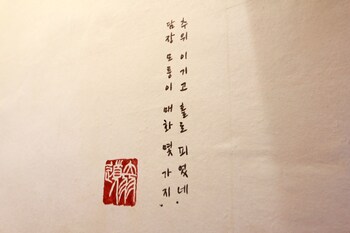 담장 모퉁이 매화 몇 가지.
추위 이기고 홀로 피었네.